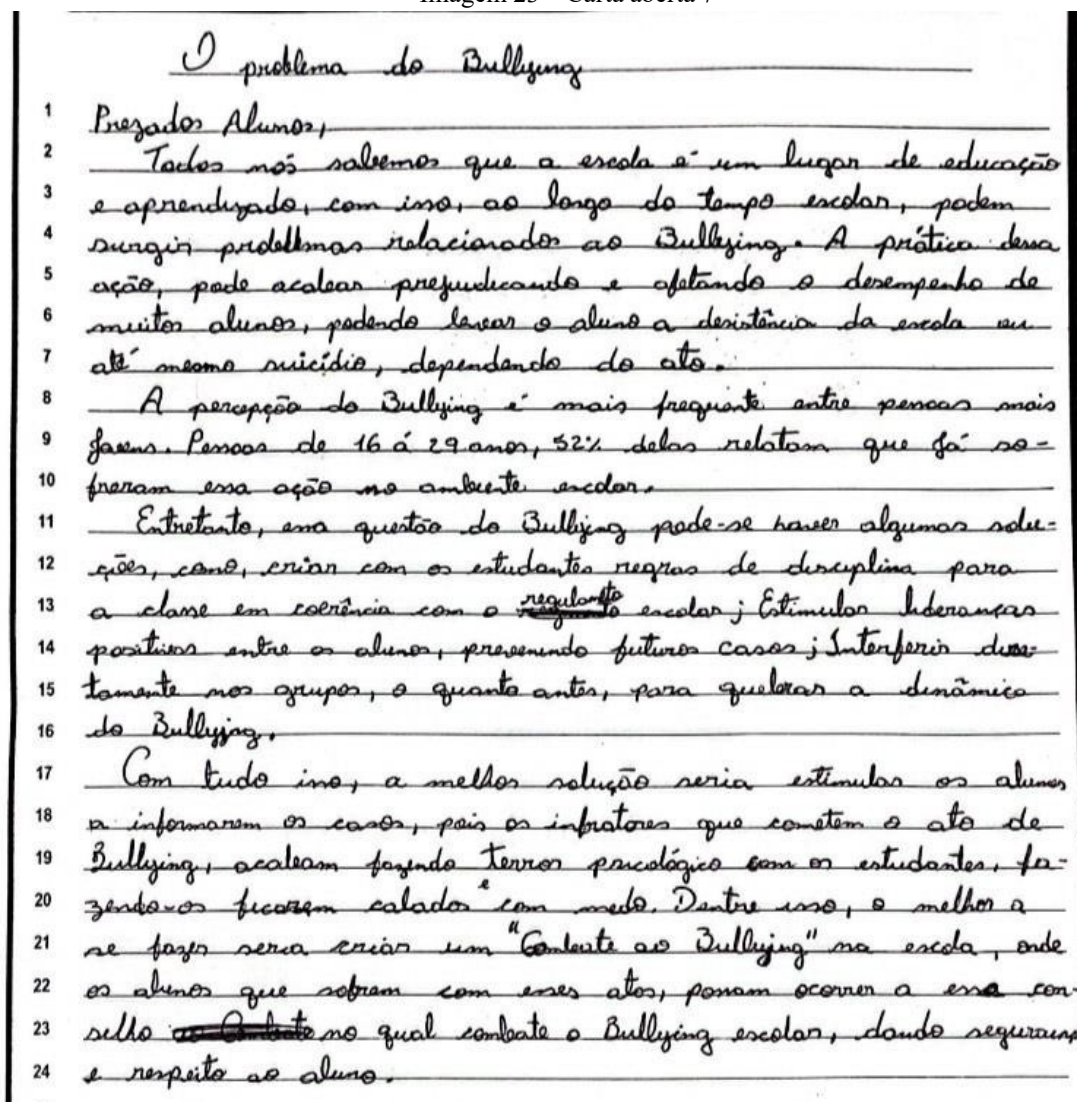 O problema do Bullying
1 Prezados Alunos,
2 Todos nós sabemos que a escola é um lugar de educação
3 e aprendizado, com isso, ao longo do tempo escolar, podem
4 surgir problemas relacionados ao Bullying. A prática dessa
5 ação, pode acabar prejudicando e afetando o desempenho de
6 muitos alunos, podendo levar o aluno a desistência da escola ou
7 até mesmo suicídio, dependendo do ato.
8 A percepção do Bullying é mais frequente entre pessoas mais
9 jovens. Pessoas de 16 á 29 anos, 52% delas relatam que já so-
10 freram essa ação no ambiente escolar.
11 Entretanto, essa questão do Bullying pode-se haver algumas solu-
12 ções, como, criar com os estudantes regras de disciplina para
13 a classe em coerência com o escolar; Estimular lideranças
14 positivas entre os alunos, prevenindo futuros casos; Interferir dire-
15 tamente nos grupos, o quanto antes, para quebrar a dinâmica
16 do Bullying.
17 Com tudo isso, a melhor solução seria estimular os alunos
18 a informarem os casos, pois os infratores que cometem o ato de
19 Bullying, acabam fazendo terror psicológico com os estudantes, fa-
20 zendo-os ficarem calados e com medo. Dentre isso, o melhor a
21 se fazer seria criar um "Combate ao Bullying" na escola, onde
22 os alunos que sofram com esses atos, possam ocorrer a esse con-
23 selho no qual combate o Bullying escolar, dando segurança
24 e respeito ao aluno.